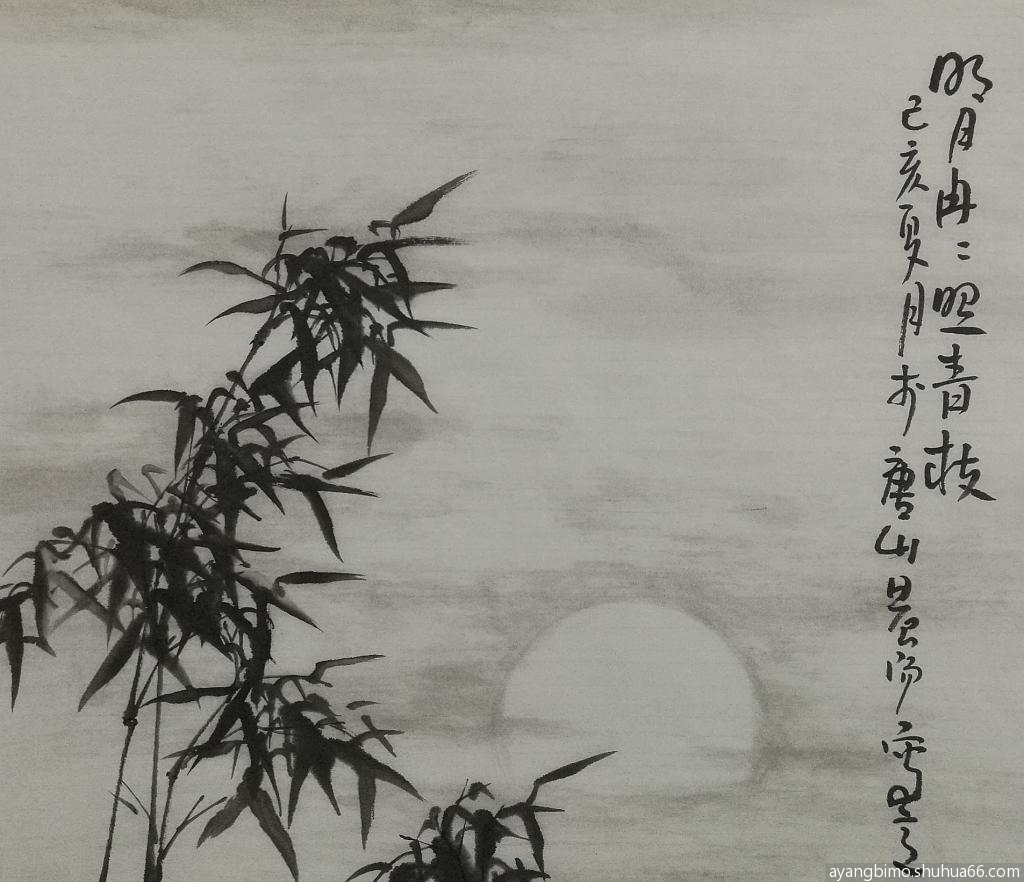 明月冉〻照青枝
己亥夏月於唐山
ayangbimo.shuhua66.com